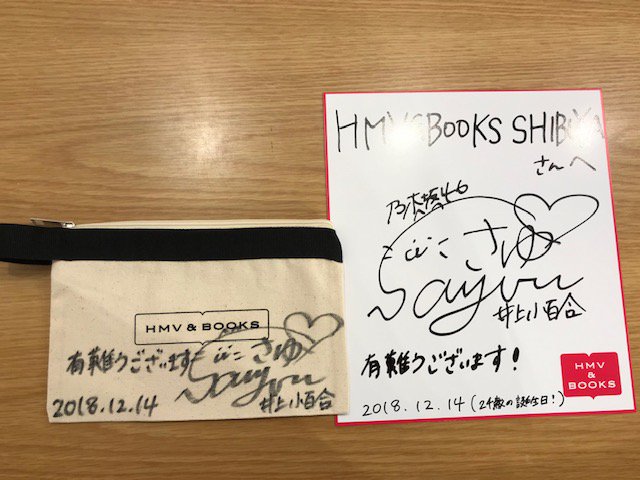 HMV & BOOKS
有難うございます
さゆ
Sayuu
井上小百合
2018.12.14
HMV&BOOKS SHIBUYA
さんへ
乃木坂46
さゆ
Sayuu
井上小百合
有難うございます!
HMV
&
BOOKS
2018.12.14(24歳の誕生日!)